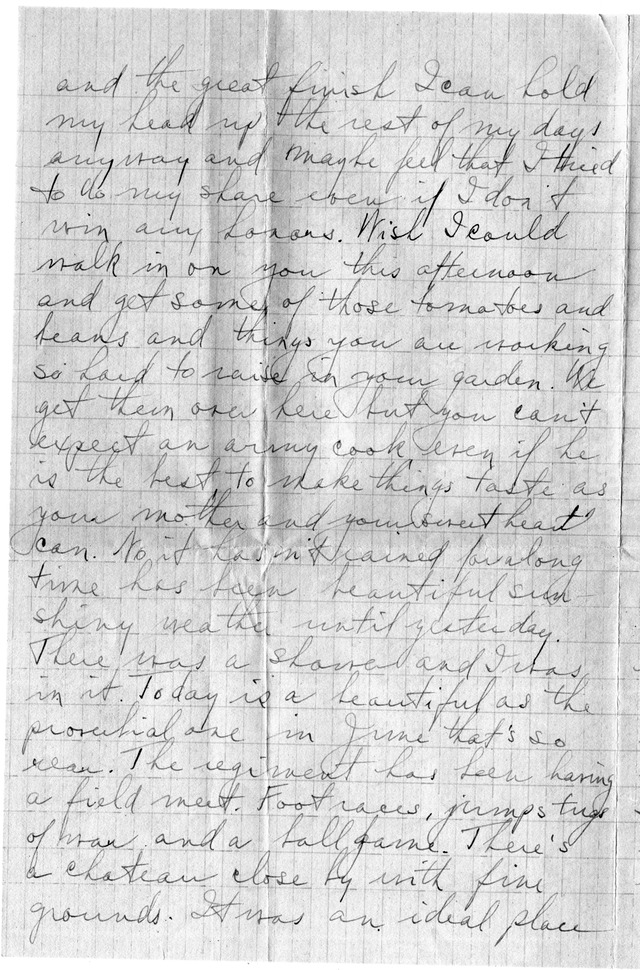 and the great finish I can hold
my head up the rest of my days
anyway and maybe feel that I tried
to do my share even if I don't
win any honors. Wish I could
walk in on you this afternoon
and get some of those tomatoes and
beans and things you are working
so hard to raise in your garden. We
get them over here but you can't
expect an army cook even if he
is the best to make things taste as
your mother and your sweetheart
can. No it hasn't rained for along
time has been beautiful sun-
shiny weather until yesterday.
There was a shower and I was
in it. Today is a beautiful as the
proverbial one in June that's so
rear. The regiment has been having
a field meet. Foot races, jumps tugs
of war and a ball game. There's
a chateau close by with fine
grounds. It was an ideal place